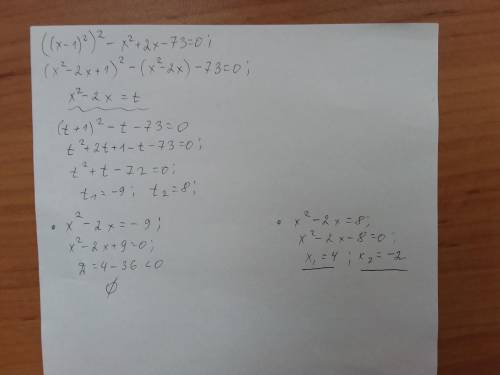 ((x-1)²)² - x²+2x-73=0;
(x²-2x+1)² - (x²-2x) - 73=0;
x²-2x=t
(t+1)² - t - 73=0
t²+2t+1-t-73=0;
t²+t-72=0;
t₁=-9; t₂=8;
• x²-2x=-9;
x²-2x+9=0;
D=4-36<0
∅
• x²-2x=8;
x²-2x-8=0;
x₁=4; x₂=-2